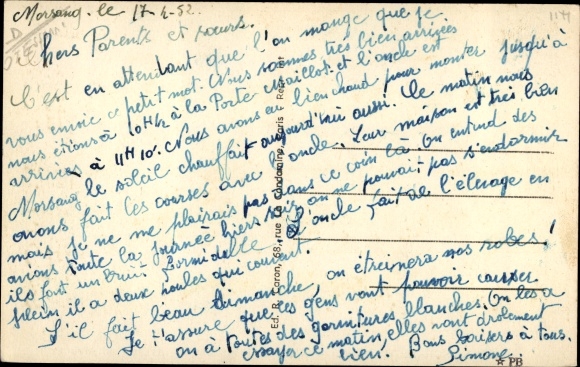 Morsang. le 17-4-52.
Chers Parents et soeurs.
C'est en attendant que l'on mange que je
vous envoie ce petit mot. Nous sommes très bien arrivées
nous étions à 10H½ à la Porte Maillot et l'oncle est
arrivé à 11H10'. Nous avons eu bien chaud pour monter jusqu'à
Morsang le soleil chauffait aujourd'hui aussi. Ce matin nous
avons fait les courses avec l'oncle. Leur maison est très bien
mais je ne me plairais pas dans ce coin là. On entend des
avions toute la journée hier soir on ne pouvait pas s'endormir
ils font un bruit formidable. L'oncle fait de l'élevage en
plein il a deux poules qui couvent.
S'il fait beau dimanche, on étrennera nos robes!
Je t'assure que les gens vont pouvoir causer
on a toutes des garnitures blanches. On les a
essayer ce matin, elles vont drôlement
bien. Bons baisers à tous.
Simone.
Ed. R. Caron, 68, rue de Paris
★ PB